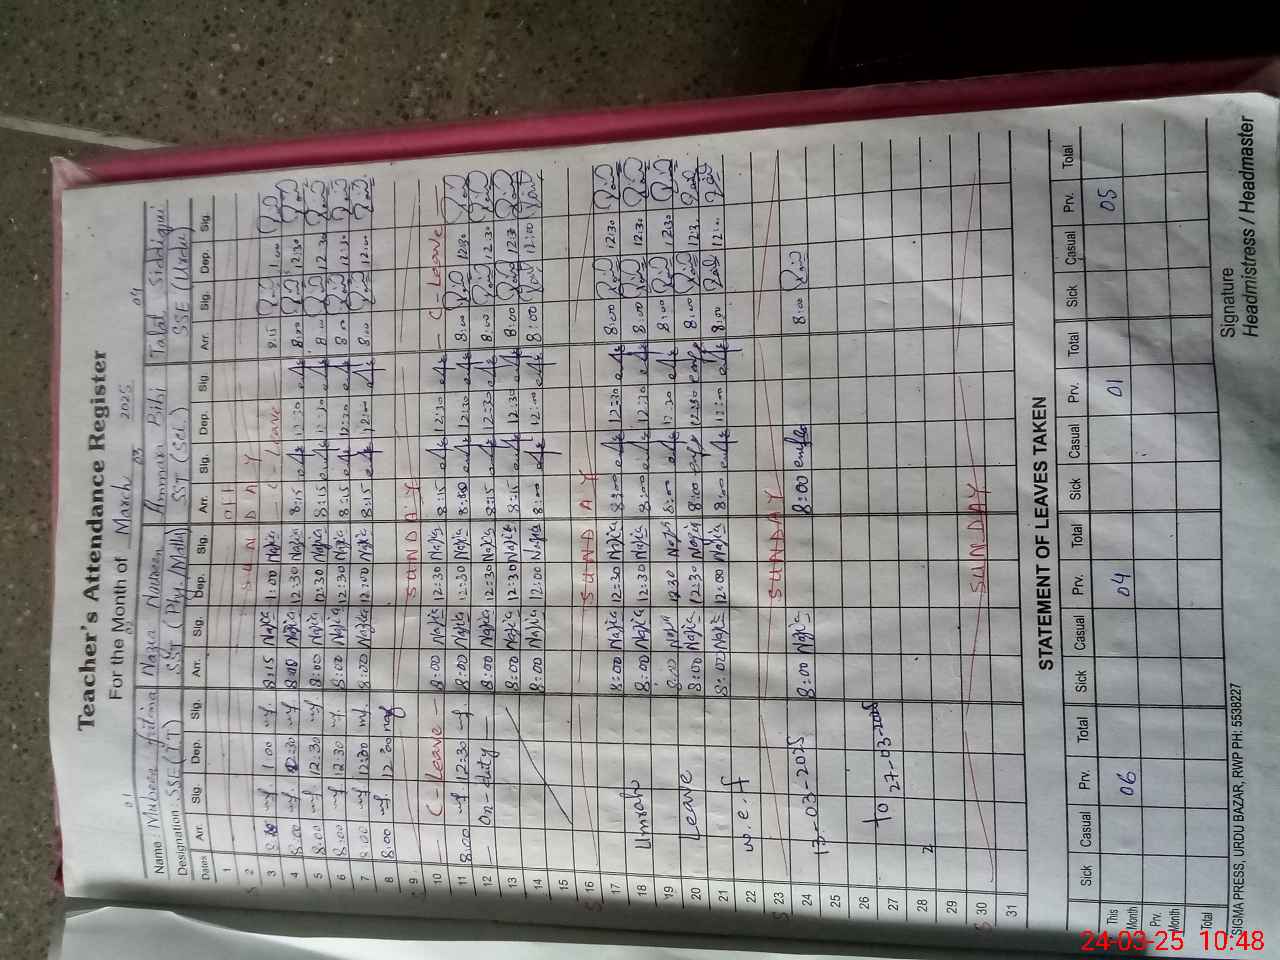 Teacher's Attendance Register
For the Month of March 2025
01 02 03 04
Name: Mubeen Fatima Nazia Noureen Ammara Bibi Talat Siddiqui
Designation: SSE (IT) SST (Phy. Math) SST (Sci.) SSE (Urdu)
Dates Arr. Sig. Dep. Sig. Arr. Sig. Dep. Sig. Arr. Sig. Dep. Sig. Arr. Sig. Dep. Sig.
1 OFF
2 SUNDAY
3 1:00 8:15 Nazia 1:00 Nazia — C - Leave — 8:15 1:00
4 8:00 12:30 8:00 Nazia 12:30 Nazia 8:15 12:30 8:00 12:30
5 8:00 12:30 8:00 Nazia 12:30 Nazia 8:15 12:30 8:00 12:30
6 8:00 12:30 8:00 Nazia 12:30 Nazia 8:15 12:30 8:00 12:30
7 8:00 12:30 8:00 Nazia 12:00 Nazia 8:15 12:00 8:00 12:00
8 8:00 12:00
9 SUNDAY
10 — C - Leave — 8:00 Nazia 12:30 Nazia 8:15 12:30 — C - Leave —
11 8:00 12:30 8:00 Nazia 12:30 Nazia 12:30 8:00 12:30
12 — On - duty — 8:00 Nazia 12:30 Nazia 8:15 12:30 8:00 12:30
13 8:00 Nazia 12:30 Nazia 8:15 12:30 8:00
14 8:00 Nazia 12:00 Nazia 8:00 12:00 8:00 12:00
15
16 SUNDAY
17 8:00 Nazia 12:30 Nazia 8:00 12:30 8:00 12:30
18 Umrah 8:00 Nazia 12:30 Nazia 8:00 12:30 8:00 12:30
19 8:00 Nazia 12:30 Nazia 8:00 12:30 8:00 12:30
20 Leave 8:00 Nazia 12:30 Nazia 8:00 12:30 8:00
21 8:00 Nazia 12:00 Nazia 8:00 12:00 8:00 12:00
22 w.e.f
S 23 SUNDAY
24 13-03-2025 8:00 Nazia 8:00 8:00
25
26 to
27 27-03-2025
28
29
S 30 SUNDAY
31
STATEMENT OF LEAVES TAKEN
Sick Casual Prv. Total Sick Casual Prv. Total Sick Casual Prv. Total Sick Casual Prv. Total
This Month 06 04 01 05
Prv. Month
Total
Signature
Headmistress / Headmaster
SIGMA PRESS, URDU BAZAR, RWP PH: 5538227
24-03-25 10:48